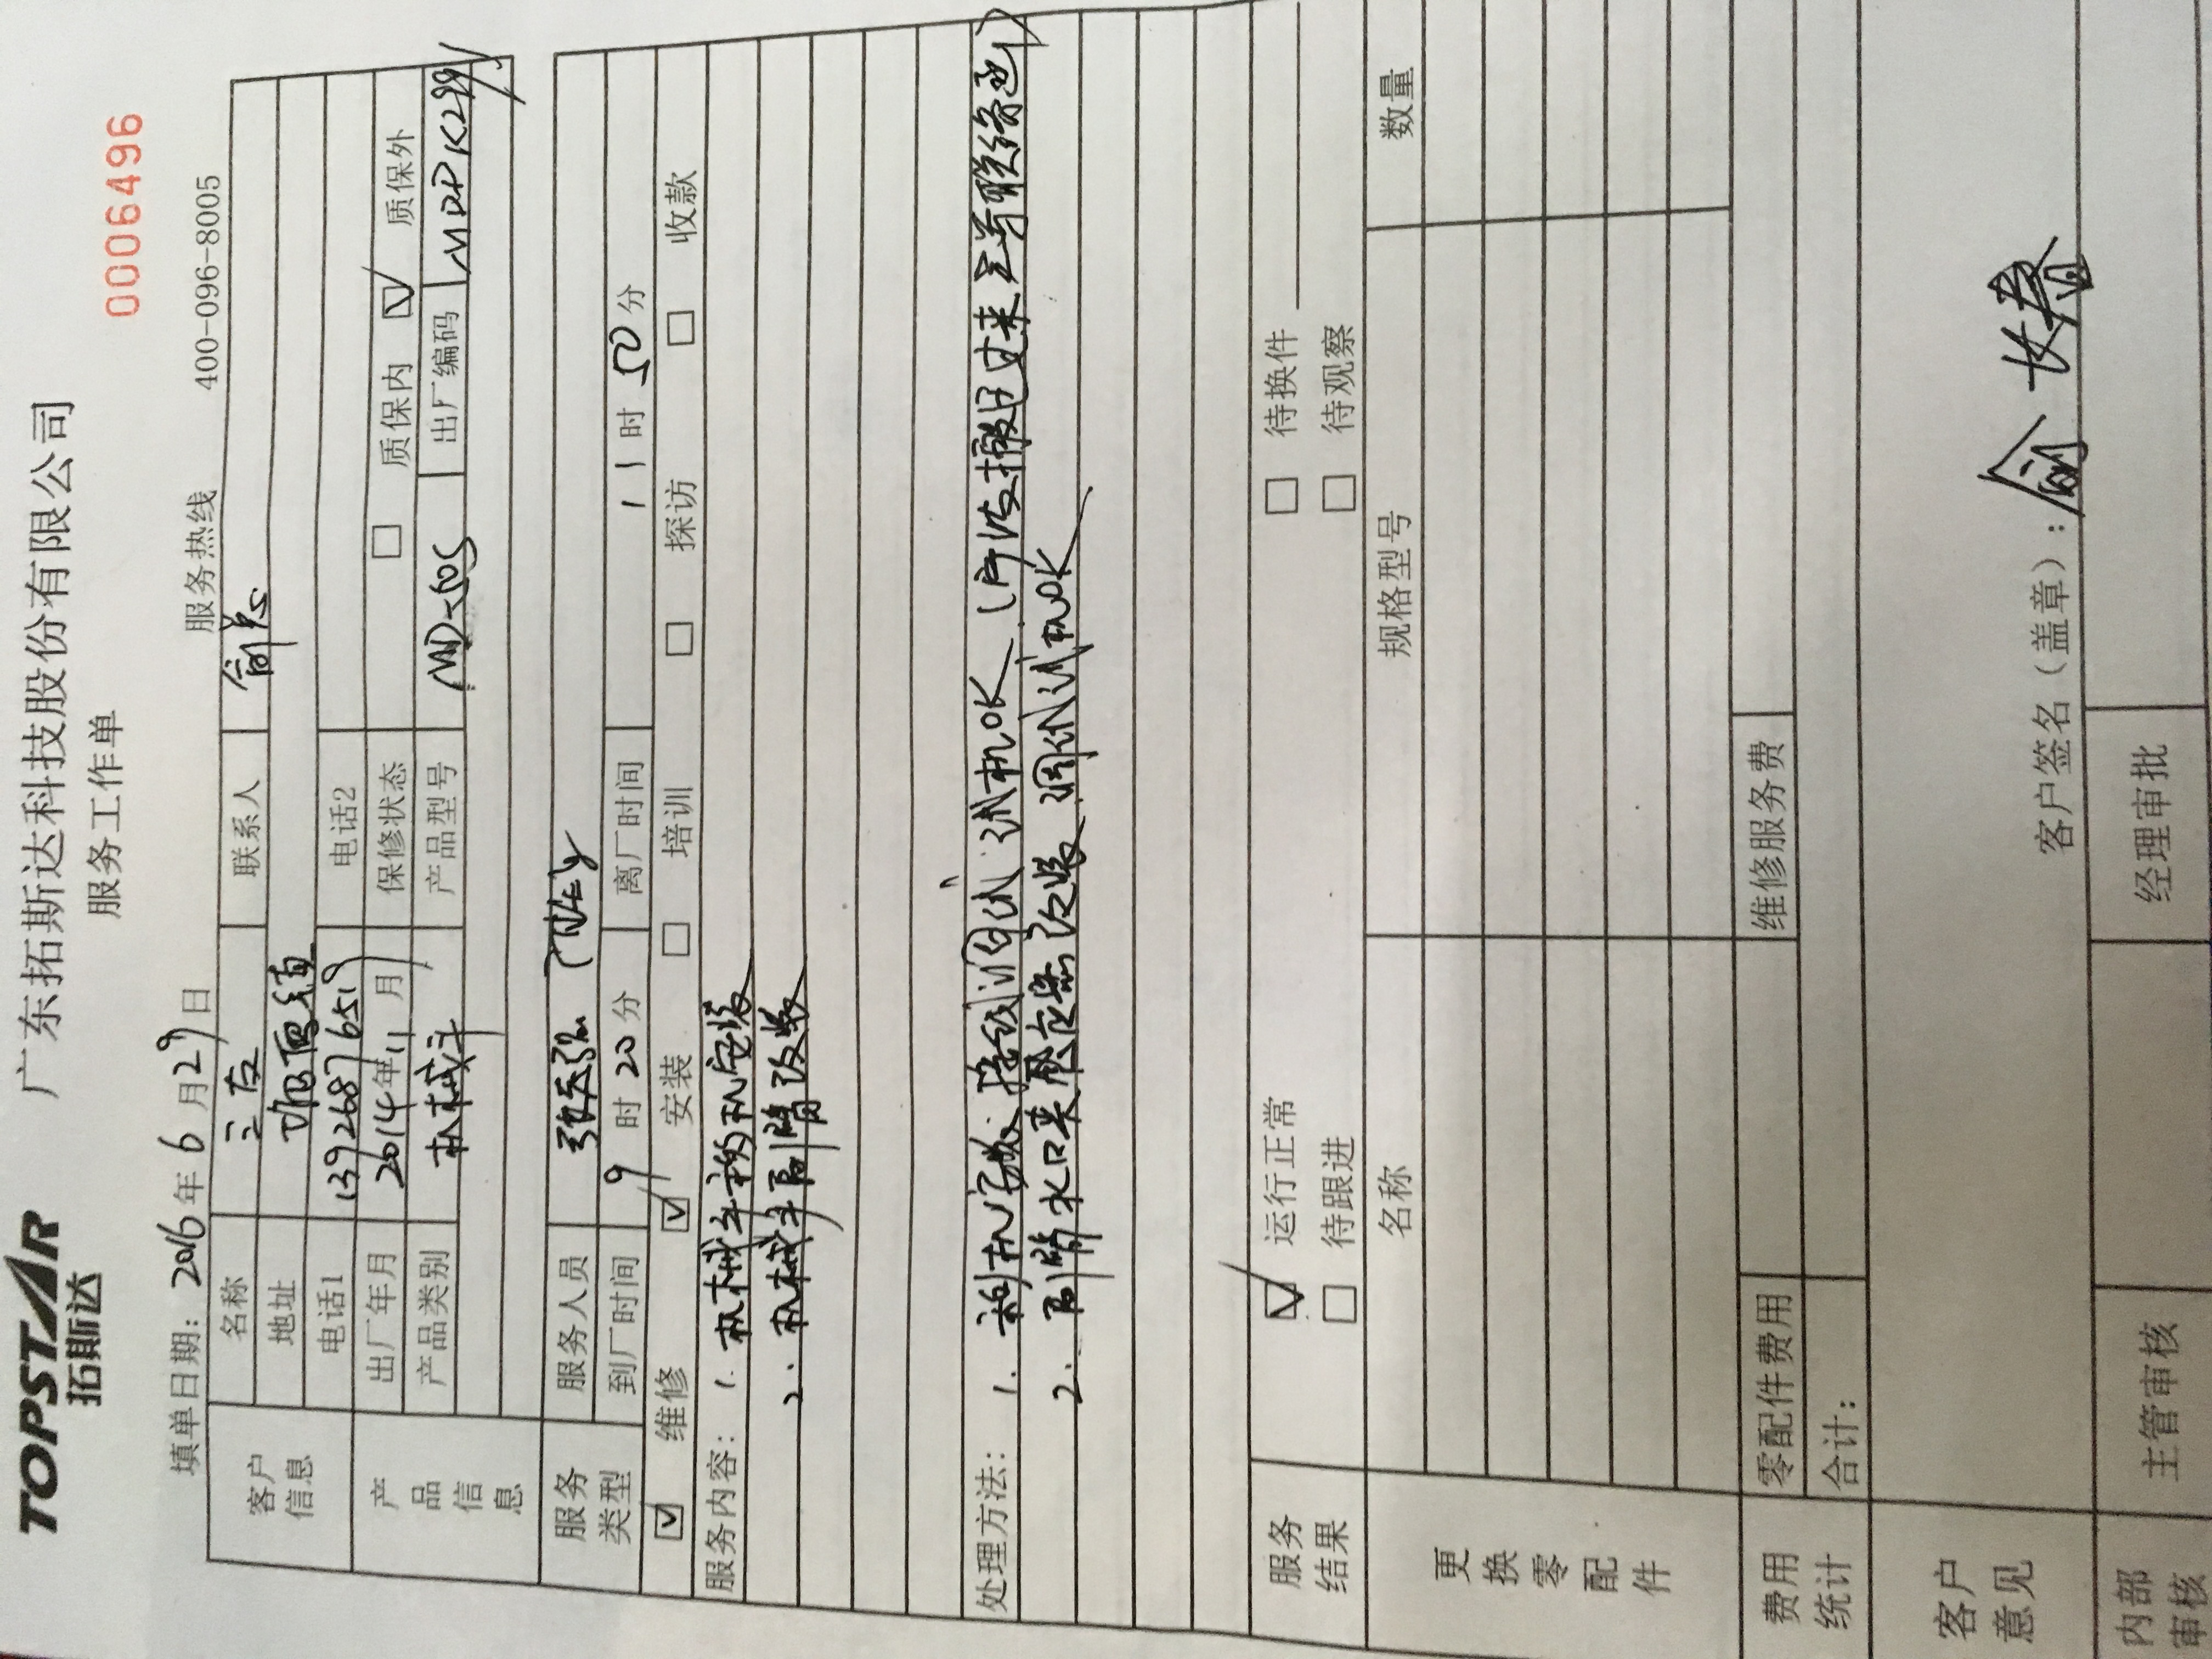 TOPSTAR
拓斯达
广东拓斯达科技股份有限公司
服务工作单
0006496
填单日期: 2016年6月29日
服务热线 400-096-8005
客户信息
名称 三友 联系人 俞总
地址
电话1 13926876519 电话2
产品信息
出厂年月 2014年11月 保修状态 □ 质保内 ☑ 质保外
产品类别 机械手 产品型号 MD-60S 出厂编码
服务类型
服务人员
到厂时间 9时20分 离厂时间 11时50分
☑ 维修 ☑ 安装 □ 培训 □ 探访 □ 收款
服务内容: 1. 机械手移机安装
2. 机械手副臂改装
处理方法: 1. 移机安装 接线调试 试机OK
2. 副臂水口夹 感应器改装 调试 试机OK
服务结果
☑ 运行正常 □ 待换件
□ 待跟进 □ 待观察
更换零配件
名称 规格型号 数量
费用统计
零配件费用 维修服务费
合计:
客户意见
客户签名（盖章）: 俞长春
内部审核
主管审核 经理审批